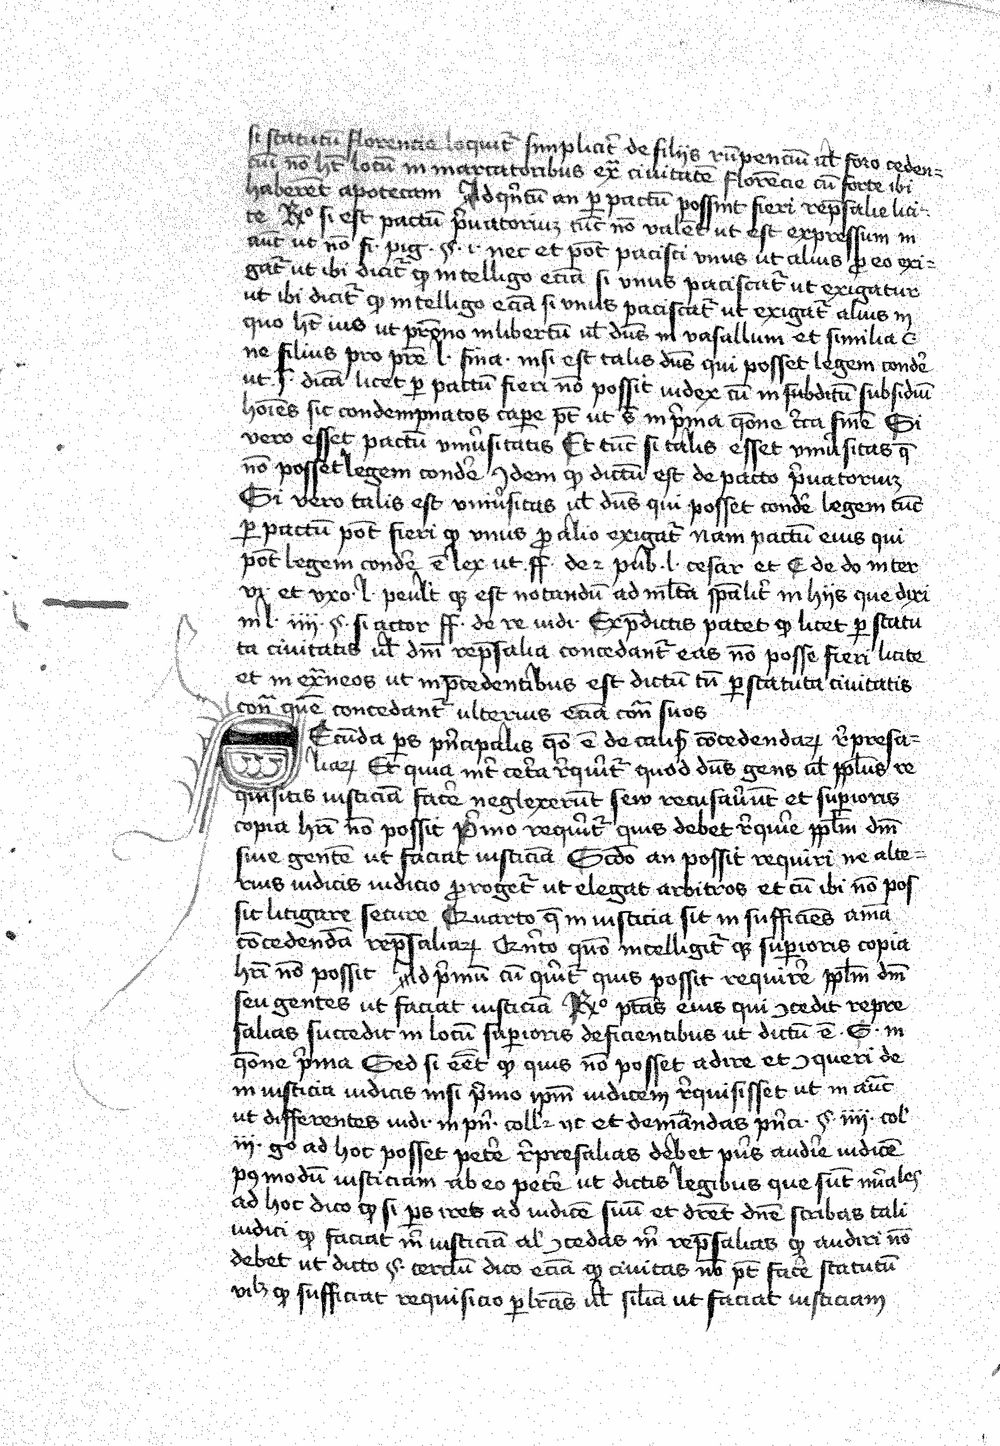 si statutū florencie loquit᷒ simplicit᷒ de filiis rūpenciū ul᷒ foro ceden=
ciū nō hēt locū in marcatoribus ex᷒ civitatē florēcie cū forte ibi
haberet apotecam Ad qn̄tū an p pactū possint fieri rep̄salie lici=
te Rº si est pactū p̄uatoriuꝫ tūc nō valēt ut est expressum in
aut᷒ ut nō fi. pig. §. i. nec et pōt pacisci vnus ut alius ꝓ eo exi=
gat᷒ ut ibi dicit᷒ qꝫ intelligo eciā si vnus paciscat᷒ ut exigatur
ut ibi dicit᷒ qꝫ intelligo eciā si vnus paciscat᷒ ut exigat᷒ alius in
quo hēt ius ut pr̄ono in libertū ul᷒ dūs in vasallum et similia C
ne filius pro pr̄e l. fina. nisi est talis dūs qui posset legem condē
ut. S. dicā licet p pactū fieri nō possit iudex tū in subditū subsidiū
hoīes sic condempnatos capē pt̄ ut s̄ in p̄ma q̄one c̄ca finē Si
vero esset pactū vniu᷒sitatis Et tūc si talis esset vniu᷒sitas q̄
nō posset legem condē Idem qꝫ dictū est de pacto p̄uatoriuꝫ
Si vero talis est vniu᷒sitas ul᷒ dūs qui posset condē legem tūc
p pactū pōt fieri qꝫ vnus ꝓ alio exigat᷒ Nam pactū eius qui
pōt legem condē ē lex ut. ff. de r pub. l. cesar et C de do inter
vi. et vxo. l. penl᷒t qꝫ est notandū ad ml᷒ta sp̄alit᷒ in hiis que dixi
in l. iiii. §. si actor ff. de re iudi. Exp̄dictis patet qꝫ licet p statu
ta civitatis ul᷒ dn̄i rep̄salia concedant᷒ eas nō posse fieri licite
et in ex᷒neos ut in p̄cedentibus est dictū tn̄ p statuta civitatis
con᷒ quē concedant᷒ ulterius eciā con᷒ suos
SEcūda ps pn̄cipalis qō ē de calib᷒ cōcedendaꝝ r̄presa=
liaꝝ Et quia int᷒ cet᷒a r̄quirit᷒ quod dūs gens ul᷒ pplūs re
quisitis iusticiā facē neglexerūt sew recusauerūt et supioris
copia hr̄i nō possit P̄mo requirit᷒ quis debet r̄quirē pplm̄ dn̄m
siue gentē ut faciat iusticiā Scdo an possit requiri ne alte=
rius iudicis iudicio ꝓroget᷒ ut elegat arbitros et cū ibi nō pos
sit litigare secure Quarto q̄ in iusticia sit in sufficiēs cā
cōcedendā rep̄saliaꝝ Qn̄to quō intelligit᷒ qꝫ supioris copia
hr̄i nō possit Ad p̄mū cū querit᷒ quis possit requirē pplm̄ dn̄m
seu gentes ut faciat iusticiā Rº ptās eius qui ɔcedit repre
salias succedit in locū supioris deficientibus ut dictū ē. S. in
q̄one p̄ma Sed si eēt qꝫ quis nō posset adire et ɔqueri de
in iusticia iudicis nisi p̄mo ip̄m iudicem r̄quisisset ut in aut᷒
ut differentes iudi. in pn̄. coll. et demandas pn̄ci. §. iiii. col᷒
iii. gº ad hoc posset petē r̄presalias debet pri᷒s audirē iudicē
pꝯmodū iusticiam ab eo petē ut dictis legibus que sūt mr̄ales
ad hoc dico qꝫ si ps iret ad iudicē suū et dr̄et dn̄e scribas tali
iudici qꝫ faciat m᷒ iusticiā al᷒ ɔcedas m᷒ rep̄salias qꝫ audiri nō
debet ut dicto §. terciū dico eciā qꝫ civitas nō pt̄ facē statutū
vilꝫ qꝫ sufficiat requisicio p lr̄as ul᷒ sil᷒ia ut faciat iusticiam